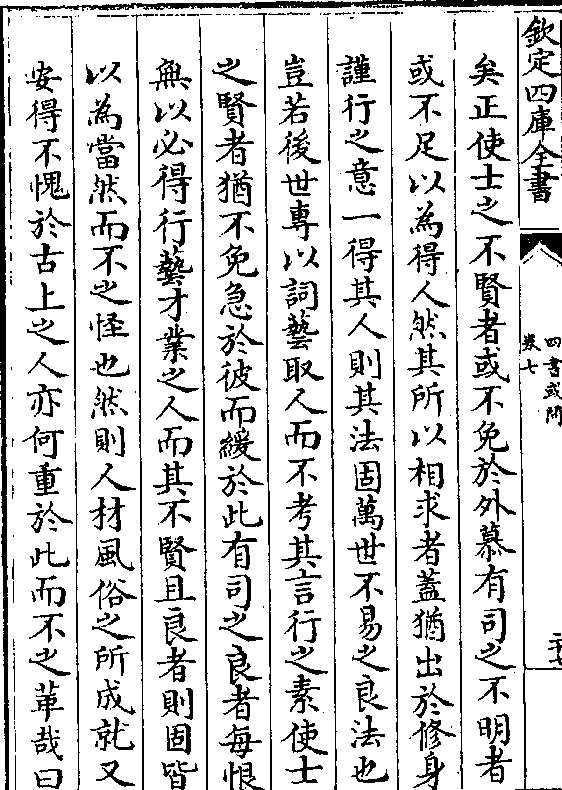 欽定四庫全書
四書或問
卷七
二十七
矣正使士之不賢者或不免於外慕有司之不明者
或不足以為得人然其所以相求者蓋猶出於修身
謹行之意一得其人則其法固萬世不易之良法也
豈若後世專以詞藝取人而不考其言行之素使士
之賢者猶不免急於彼而緩於此有司之良者每恨
無以必得行藝才業之人而其不賢且良者則固皆
以為當然而不之怪也然則人材風俗之所成就又
安得不愧於古上之人亦何重於此而不之革哉曰